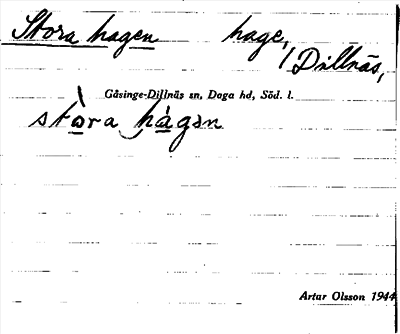 Stora hagen hage, Dillnäs,
Gåsinge-Dillnäs sn, Daga hd, Söd. l.
stòra hágen
Artur Olsson 1944